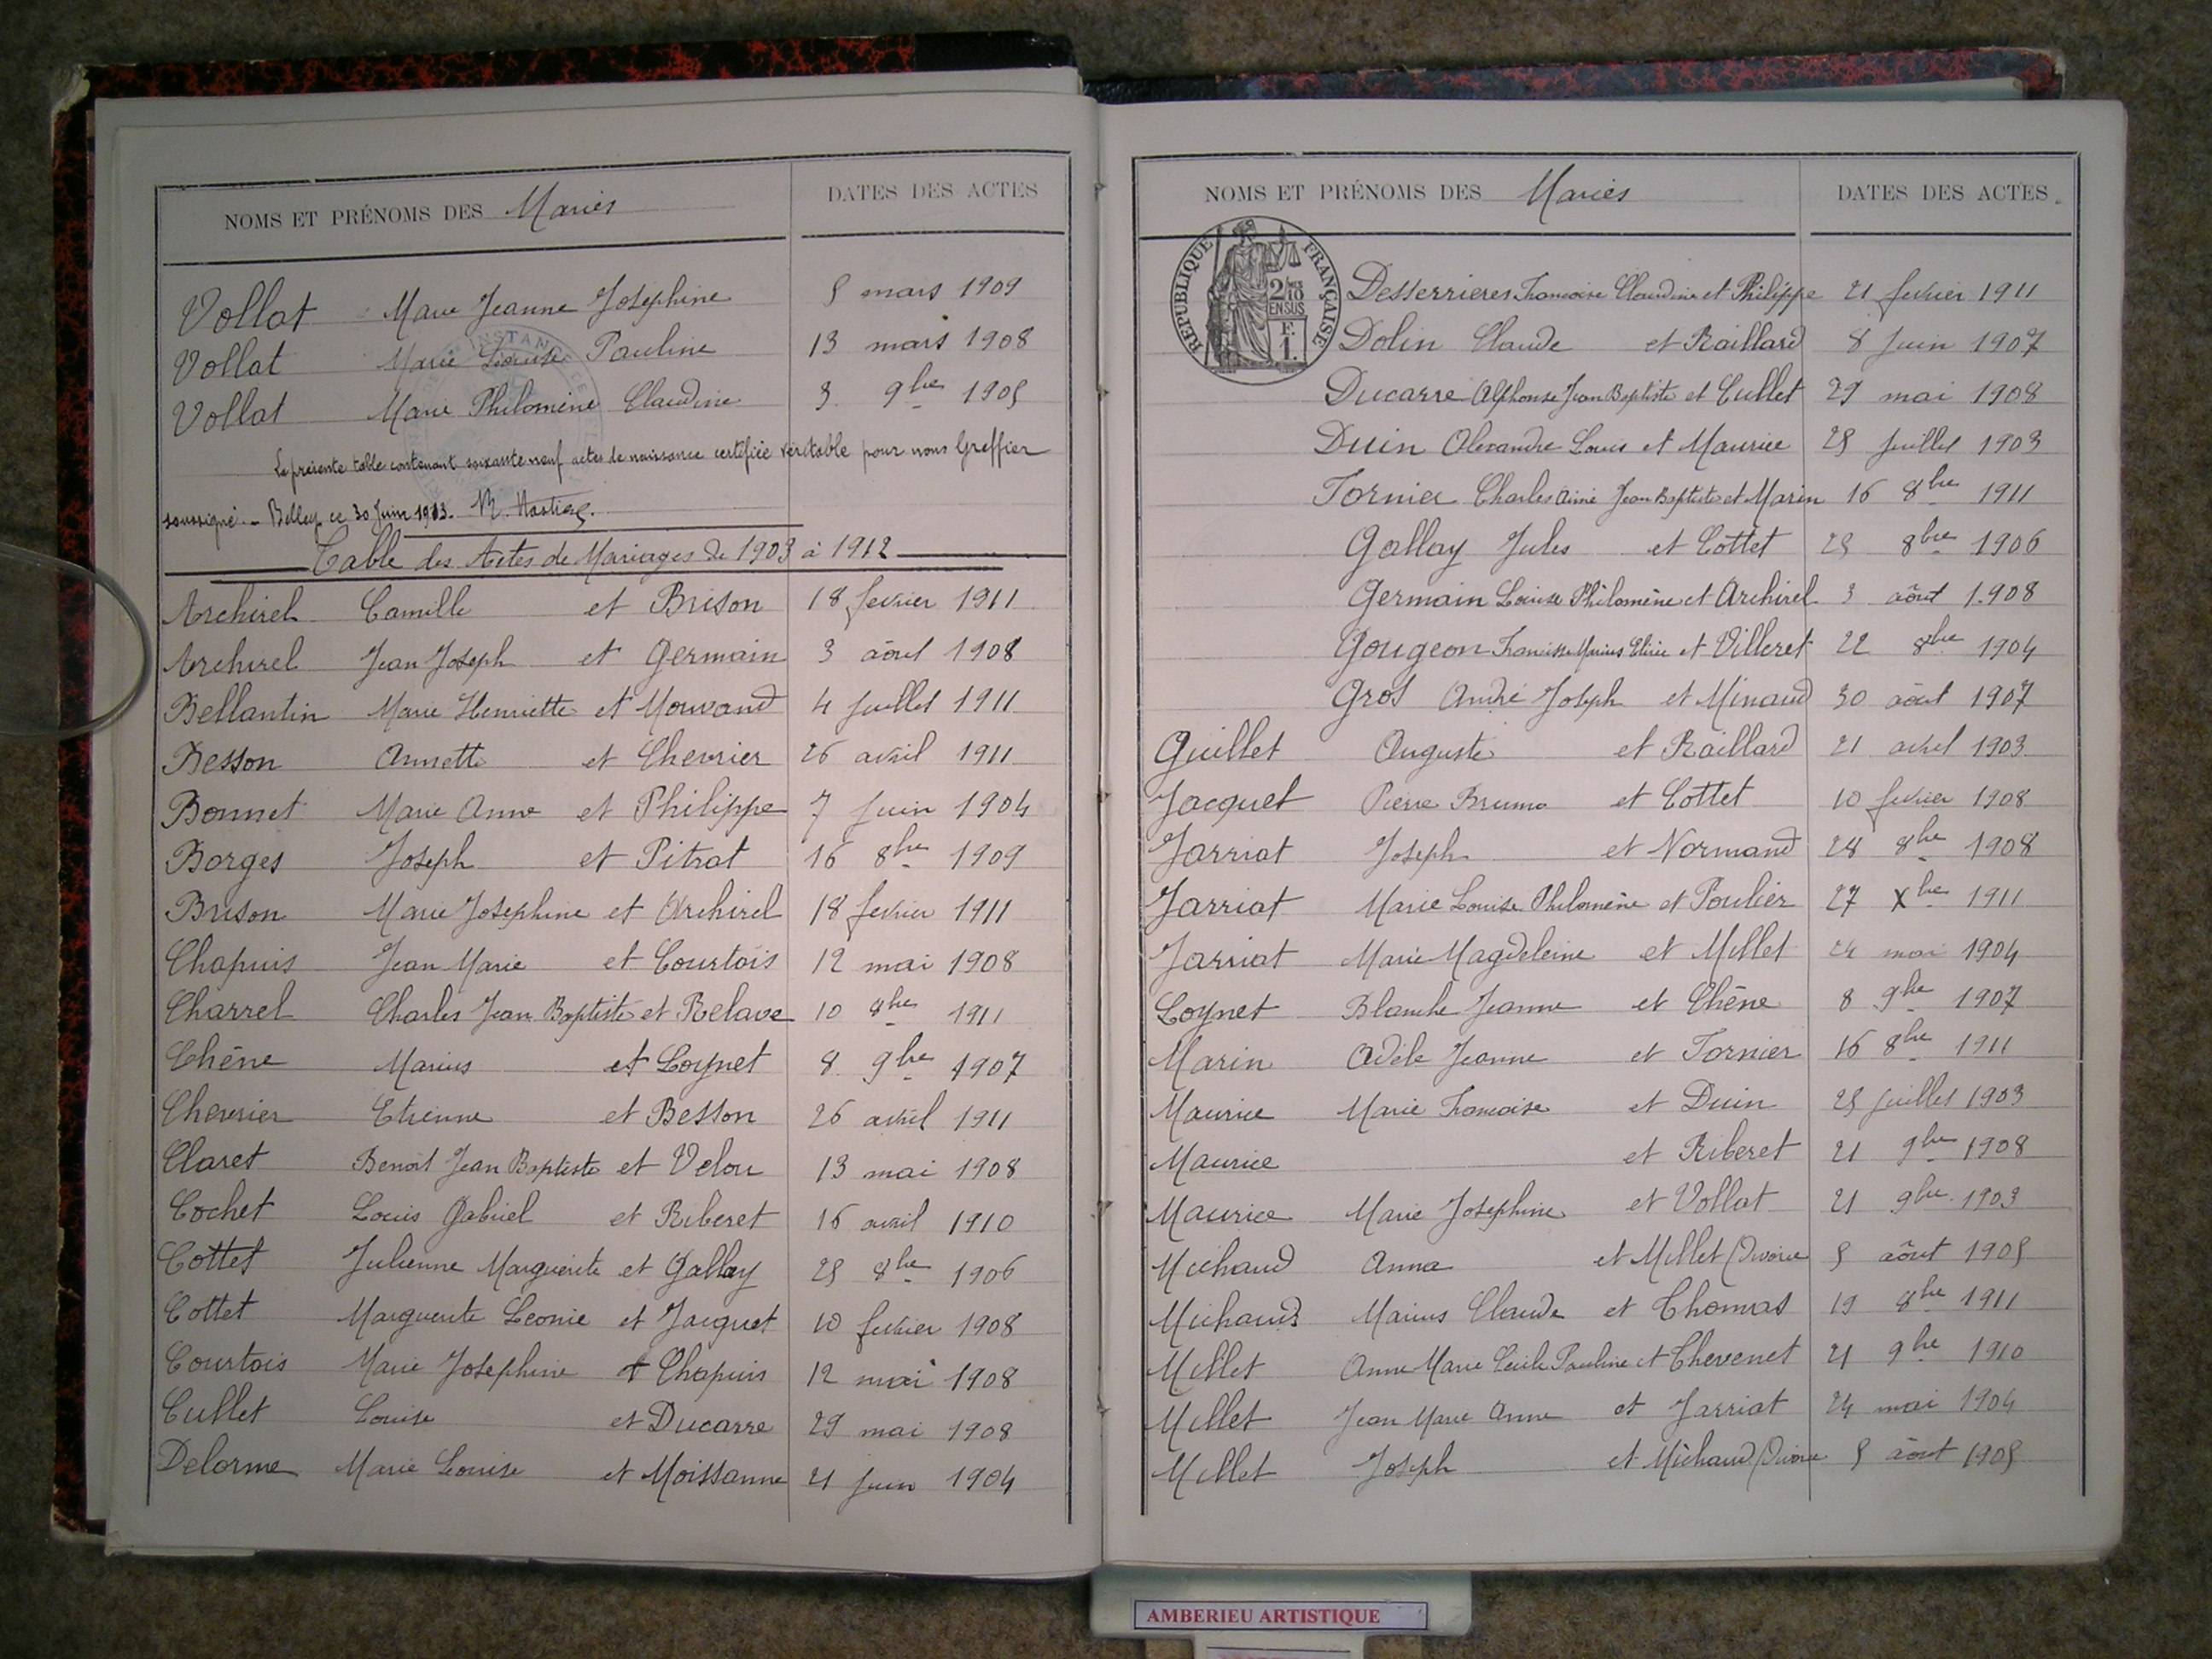 NOMS ET PRÉNOMS DES Mariés DATES DES ACTES
Vollat Marie Jeanne Josephine 5 mars 1909
Vollat Marie Louise Pauline 13 mars 1908
Vollat Marie Philomène Claudine 3 9bre 1905
La présente table contenant soixante neuf actes de naissance certifiée véritable par nous Greffier
soussigné. - Belley ce 30 Juin 1913.
Table des Actes de Mariages de 1903 à 1912
Archirel Camille et Brison 18 fevrier 1911
Archirel Jean Joseph et Germain 3 août 1908
Bellantin Marie Henriette et Mouvand 4 Juillet 1911
Besson Annette et Chevrier 26 avril 1911
Bonnet Marie Anne et Philippe 7 Juin 1904
Borges Joseph et Pitrat 16 8bre 1909
Brison Marie Josephine et Archirel 18 fevrier 1911
Chapuis Jean Marie et Courtois 12 mai 1908
Charrel Charles Jean Baptiste et Relave 10 8bre 1911
Chêne Marius et Loynet 8 9bre 1907
Chevrier Etienne et Besson 26 avril 1911
Claret Benoit Jean Baptiste et Velou 13 mai 1908
Cochet Louis Gabriel et Riberet 16 avril 1910
Cottet Julienne Marguerite et Gallay 25 8bre 1906
Cottet Marguerite Leonie et Jacquet 10 fevrier 1908
Courtois Marie Josephine et Chapuis 12 mai 1908
Cullet Louise et Ducarre 29 mai 1908
Delorme Marie Louise et Moissanne 21 Juin 1904
NOMS ET PRÉNOMS DES Mariés DATES DES ACTES
RÉPUBLIQUE FRANÇAISE
2/10 EN SUS
F. 1.
Desserrieres Francoise Claudine et Philippe 21 fevrier 1911
Dolin Claude et Raillard 8 Juin 1907
Ducarre Alphonse Jean Baptiste et Cullet 29 mai 1908
Duin Alexandre Louis et Maurice 25 Juillet 1903
Fornier Charles Aimé Jean Baptiste et Marin 16 8bre 1911
Gallay Jules et Cottet 25 8bre 1906
Germain Louise Philomène et Archirel 3 août 1908
Gougeon Marius et Villeret 22 8bre 1904
Gros André Joseph et Minaud 30 août 1907
Guillet Auguste et Raillard 21 avril 1903
Jacquet Pierre Bruno et Cottet 10 fevrier 1908
Jarriat Joseph et Normand 28 8bre 1908
Jarriat Marie Louise Philomène et Poulier 27 Xbre 1911
Jarriat Marie Magdeleine et Millet 24 mai 1904
Loynet Blanche Jeanne et Chêne 8 9bre 1907
Marin Adèle Jeanne et Fornier 16 8bre 1911
Maurice Marie Francoise et Duin 25 Juillet 1903
Maurice et Riberet 21 9bre 1908
Maurice Marie Josephine et Vollat 21 9bre 1903
Michaud Anna et Millet (Divorce 5 août 1905
Michaud Marius Claude et Thomas 19 8bre 1911
Millet Anne Marie Cécile Pauline et Chevenet 21 9bre 1910
Millet Jean Marie Anne et Jarriat 24 mai 1904
Millet Joseph et Michaud (Divorce 5 août 1905
AMBERIEU ARTISTIQUE